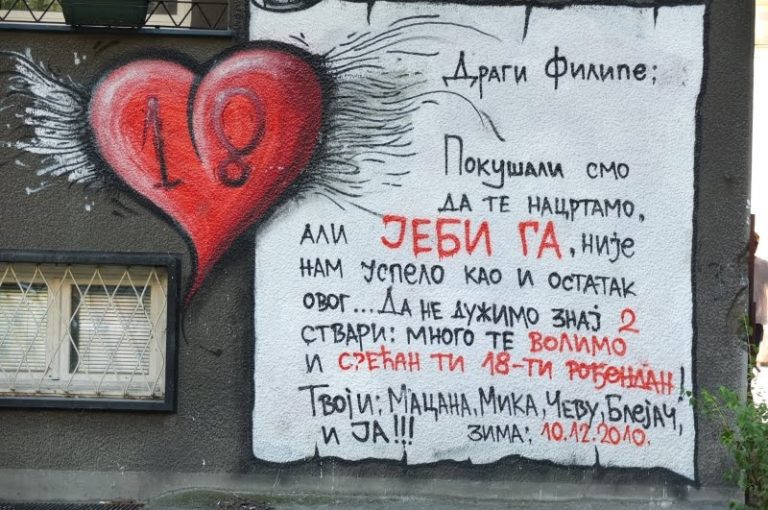 18
Драги Филипе;
Покушали смо
да те нацртамо,
али ЈЕБИ ГА, није
нам успело као и остатак
овог...Да не дужимо знај 2
ствари: много те волимо
и срећан ти 18-ти рођендан!
Твоји: Мацана, Мика, Чеву, Блејач,
и ЈА!!! зима; 10.12.2010.